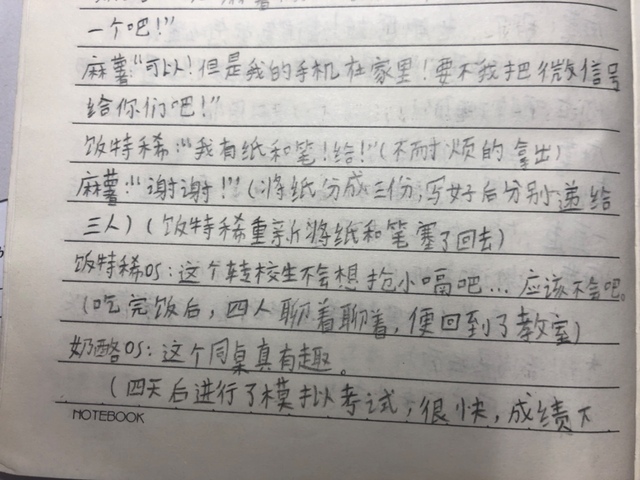 一个吧!”
麻薯:“可以!但是我的手机在家里!要不我把微信号
给你们吧!”
饭特稀:“我有纸和笔!给!”(不耐烦的拿出)
麻薯:“谢谢!”(将纸分成三份,写好后分别递给
三人)(饭特稀重新将纸和笔塞了回去)
饭特稀OS:这个转校生不会想抢小嗝吧...应该不会吧。
(吃完饭后,四人聊着聊着,便回到了教室)
奶酪OS:这个同桌真有趣。
(四天后进行了模拟考试,很快,成绩下
NOTEBOOK